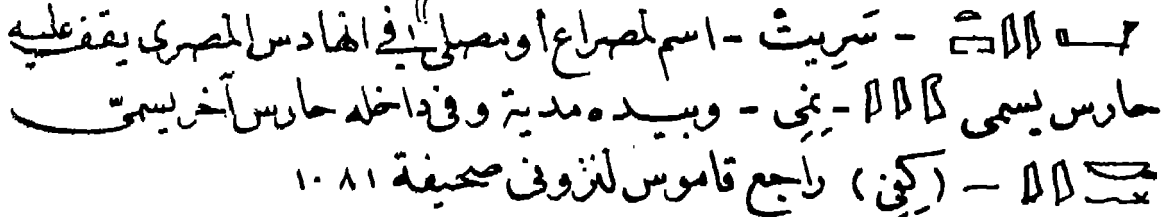 - سَرِيتْ - اسم لمصراع أو مصلى في الهادس المصرى يقف عليه
حارس يسمى - نِنِى - وبيده مدية وفى داخله حارس آخر يسمىّ
- (كِفِى) راجع قاموس لنزونى صحيفة ١٠٨١